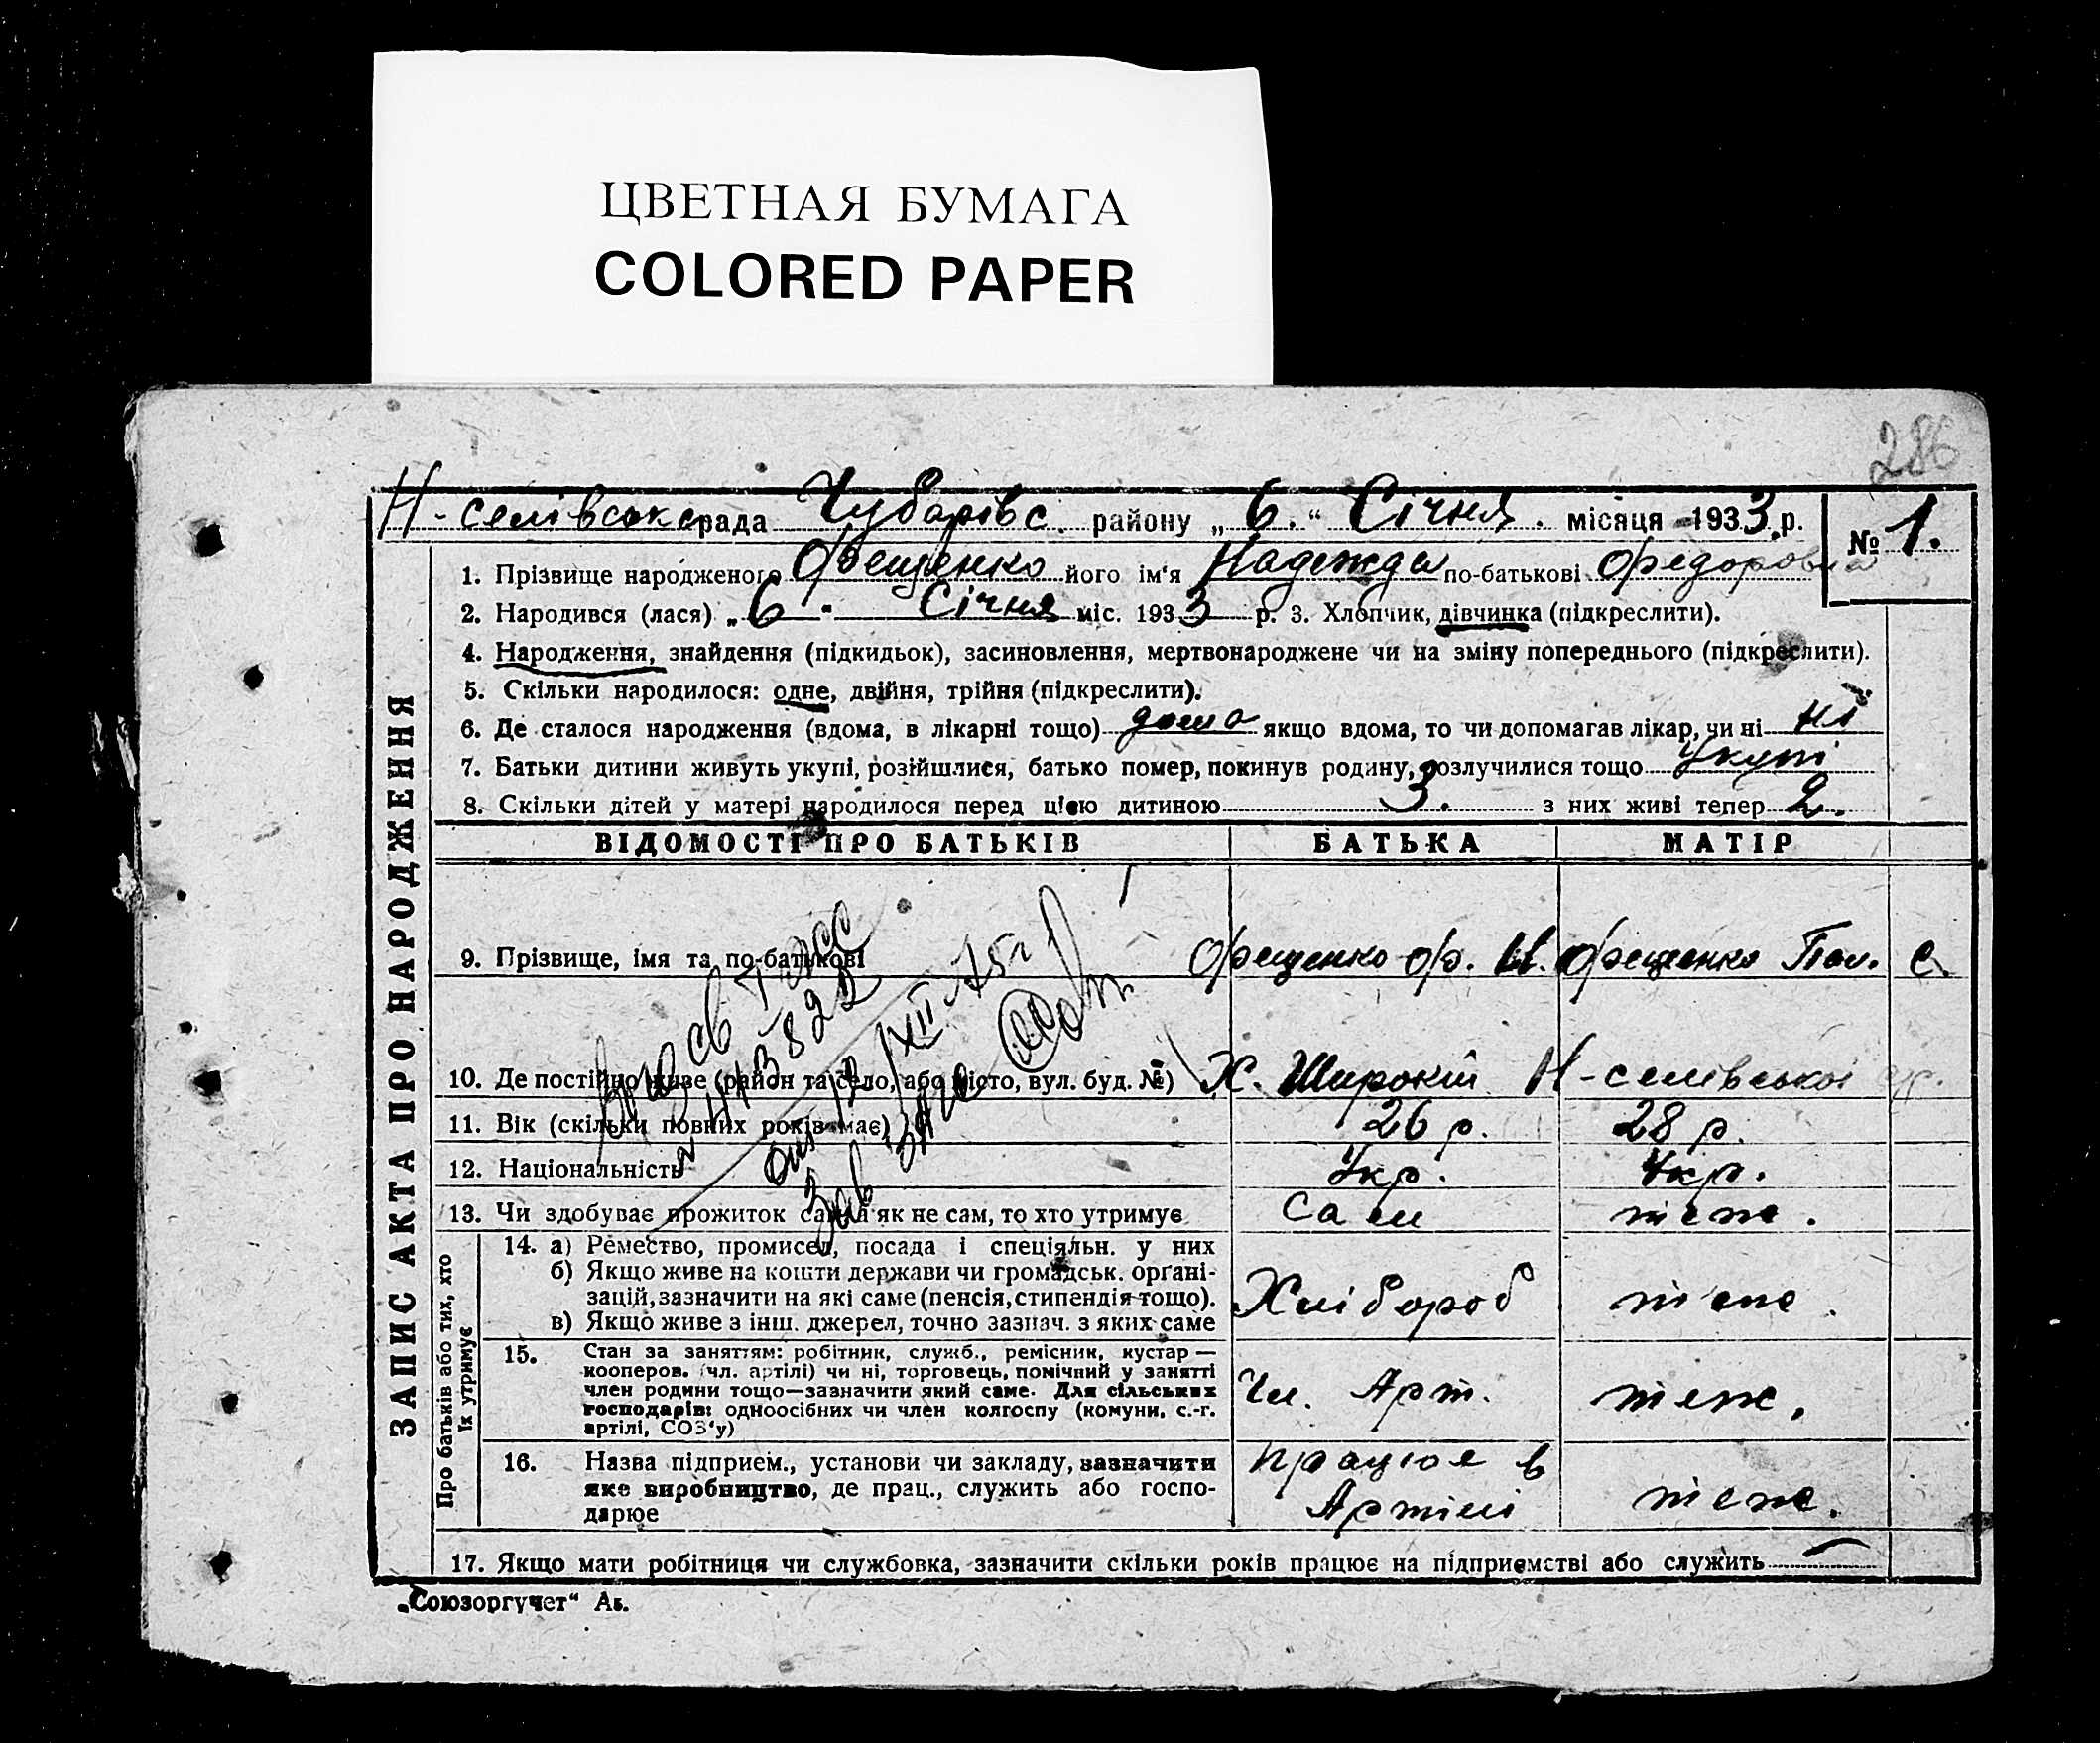 ЦВЕТНАЯ БУМАГА
COLORED PAPER
286
Н-селівська рада Чубарівс. району „6.“ Січня. місяця 1933 р.
№ 1.
ЗАПИС АКТА ПРО НАРОДЖЕННЯ
1. Прізвище народженого Фещенко його ім'я Надежда по-батькові Федоровна
2. Народився (лася) „6 Січня міс. 1933 р. 3. Хлопчик, дівчинка (підкреслити).
4. Народження, знайдення (підкидьок), засиновлення, мертвонароджене чи на зміну попереднього (підкреслити).
5. Скільки народилося: одне, двійня, трійня (підкреслити).
6. Де сталося народження (вдома, в лікарні тощо) дома якщо вдома, то чи допомагав лікар, чи ні ні
7. Батьки дитини живуть укупі, розійшлися, батько помер, покинув родину, розлучилися тощо Укупі
8. Скільки дітей у матері народилося перед цією дитиною 3. з них живі тепер 2.
ВІДОМОСТІ ПРО БАТЬКІВ БАТЬКА МАТІР
9. Прізвище, імя та по-батькові Фещенко Ф. И. Фещенко Пол. С.
10. Де постійно живе (район та село, або місто, вул. буд. №) Х. Широкий Н-селівської
11. Вік (скільки повних років має) 26 р. 28 р.
12. Національність Укр. Укр.
13. Чи здобуває прожиток сам, а як не сам, то хто утримує Сам теж.
Про батьків або тих, хто їх утримує
14. а) Ремество, промисел, посада і спеціяльн. у них
б) Якщо живе на кошти держави чи громадськ. органі-
зацій, зазначити на які саме (пенсія, стипендія тощо).
в) Якщо живе з інш. джерел, точно зазнач. з яких саме
Хлібороб теж.
15. Стан за заняттям: робітник, служб., ремісник, кустар —
кооперов. (чл. артілі) чи ні, торговець, помічний у занятті
член родини тощо—зазначити який саме. Для сільських
господарів: одноосібних чи член колгоспу (комуни, с.-г.
артілі, СОЗ'у)
Чл. Арт. теж.
16. Назва підприєм., установи чи закладу, зазначити
яке виробництво, де прац., служить або госпо-
дарює
працює в
Артілі теж.
17. Якщо мати робітниця чи службовка, зазначити скільки років працює на підприємстві або служить —
„Союзоргучет“